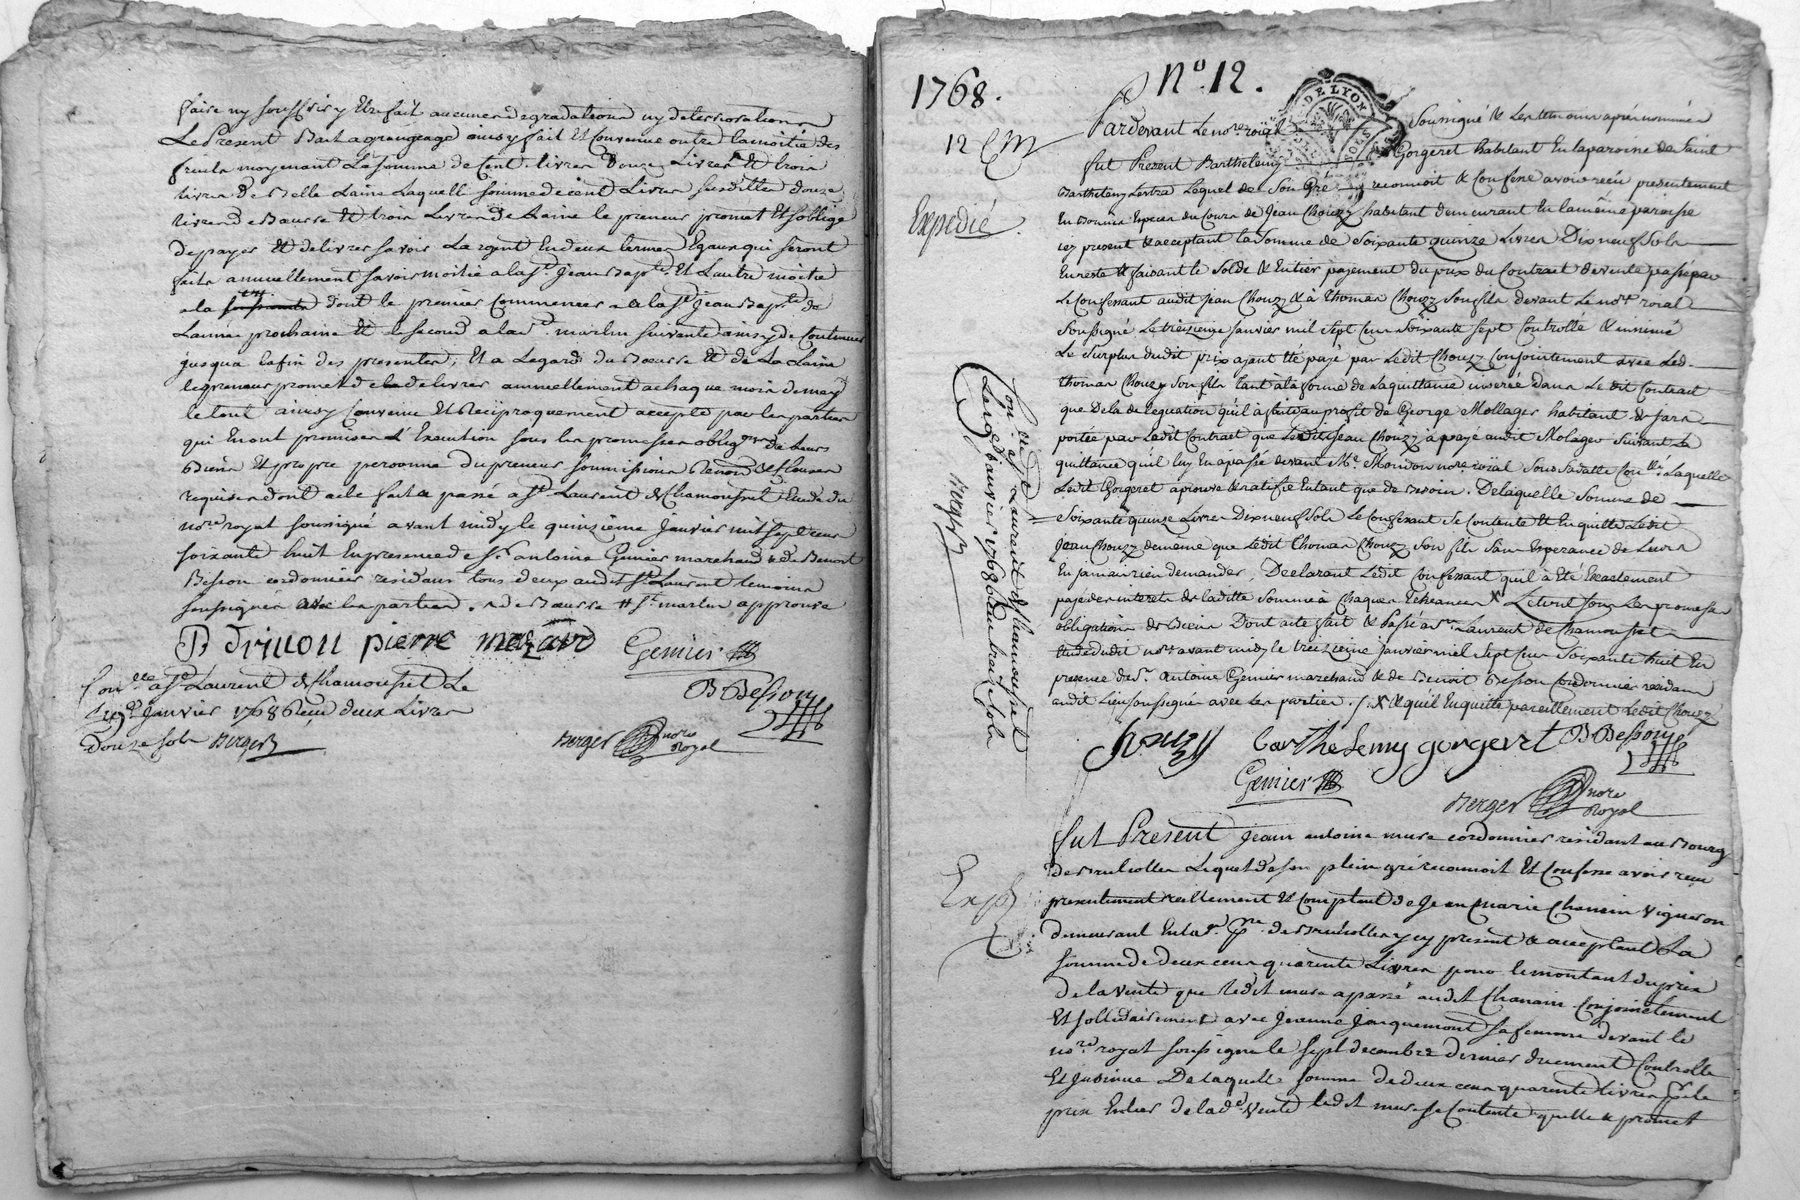 faire ny souffrir y Etre fait aucunes degradations ny deteriorations
Le Present Bail a grangeage ainsy fait Et Convenu outre la moitié des
fruits moyenant La somme de Cent livres douze Livres de trois
livres de Belle Laine Laquelle somme de cent Livres susditte douze
livres de Beurre Et trois Livres de Laine le preneur promet Et soblige
de payer Et delivrer savoir Largent En deux termes Egaux qui seront
faits annuellement savoir moitié a la st. jean Bapte. Et Lautre moitié
a la dont le premier Commencera a la st jean Bapte de
Lannée prochaine Et le second a la st. martin suivante ainsy de Continuer
jusqua la fin des presentes, Et a Legard du Beurre Et de La Laine
le preneur promet de le delivrer annuellement a chaque mois de may
le tout ainsy Convenu Et Reciproquement accepté par les parties
qui En ont promis L'Execution sous les promesses obligons de leurs
Biens Et propre personne du preneur soumissions Renons & clauses
requises dont acte fait & passé a St. Laurent de Chamousset Etude du
nore royal soussigné avant midy le quinzieme janvier mil sept cens
soixante huit En presence de sr. antoine Genier marchand & de Benoit
Besson cordonnier residans tous deux audit St Laurent temoins
soussignés avec les parties. de Beurre # st. martin approuvé
B Brinon pierre mazard Genier
B Besson
Conlée a St Laurent de Chamousset Le
janvier 1768 Recu deux Livres
Douze sols Berger
Berger nore
Royal
1768.
No. 12.
DE LYON
12
Pardevant Le nore. royal Soussigné & Les temoins aprés nommés
fut Present Barthelemy Gorgeret habitant En la paroisse de Saint
Barthelemy Lestra Lequel de Son Gré reconnoit & Confesse avoir recu presentement
Expedié.
En Bonnes Especes du Cours de Jean Chouzy habitant demeurant En la même paroisse
icy present & acceptant la Somme de Soixante quinze Livres Dix neuf Sols
En reste & faisant le Solde & Entier payement du prix du Contract de vente passé par
Le Confessant audit jean Chouzy & à Thomas Chouzy Son fils devant Le nore. royal
Soussigné Le treizieme janvier mil Sept Cens Soixante Sept Controllé & insinué
Le Surplus dudit prix ayant Eté payé par Ledit Chouzy Conjointement avec Led.
thomas Chouzy Son fils tant à la forme de La quittance inserée dans Le dit Contract
que De la delegation qu'il à faite au profit de George Mollager habitant
portée par Ledit Contract que Ledit jean Chouzy à payé audit Molager Suivant La
quittance qu'il luy En a passé devant Me. nore royal Sous Sa datte Laquelle
Ledit Gorgeret aprouve & ratifie En tant que de Besoin. De laquelle Somme de
Soixante quinze Livres Dix neuf Sols Le Confessant Se Contente Et En quitte Ledit
jean Chouzy de même que Ledit Thomas Chouzy Son fils Sans Esperance de Leur
En jamais rien demander, Declarant Ledit Confessant qu'il à Eté Exactement
payé des interets de laditte Somme à Chaques Echeances * Le tout Sous Les promesses
obligations de Biens Dont acte fait & Passé a st. Laurent de Chamousset
Etude dudit nore avant midy le treizieme janvier mil Sept Cens Soixante huit En
presence de Sr. Antoine Genier marchand & de Benoit Besson Cordonnier residans
audit Lieu soussignés avec Les parties. /. * & qu'il En quitte pareillement Ledit Chouzy
Chouzy barthelemy gorgeret B Besson
Genier
Berger nore
Royal
Conlée a St Laurent de Chamousset
Le 13e janvier 1768 Recu treize sols
Berger
Fut Present jean antoine mure cordonnier residant au Bourg
de Brullolles Lequel de son plein gré reconnoit Et Confesse avoir recu
presentement reellement Et Comptant de jean marie Chanain vigneron
demeurant En la de Brullolles y cy present & acceptant La
somme de deux cens quarente Livres pour le montant du prix
de la vente que ledit mure a passé audit Chanain Conjointement
Et sollidairement avec jeanne jacquemont sa femme devant le
nore. royal soussigné le sept decembre dernier duement Controllé
Et Insinué De laquelle somme de deux cens quarente livres
prix Entier de lade. vente ledit mure se Contente quitte & promet